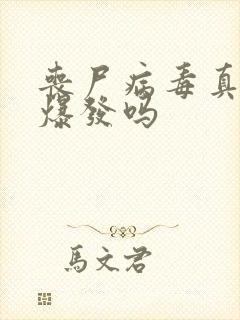 丧尸病毒真
爆發吗
馬文君